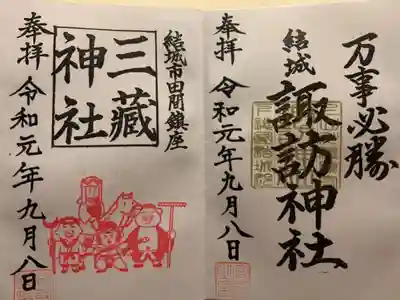 万事必勝
結城
諏訪神社
奉拝
令和元年九月八日
結城市田間鎮座
三蔵
神社
奉拝
令和元年九月八日